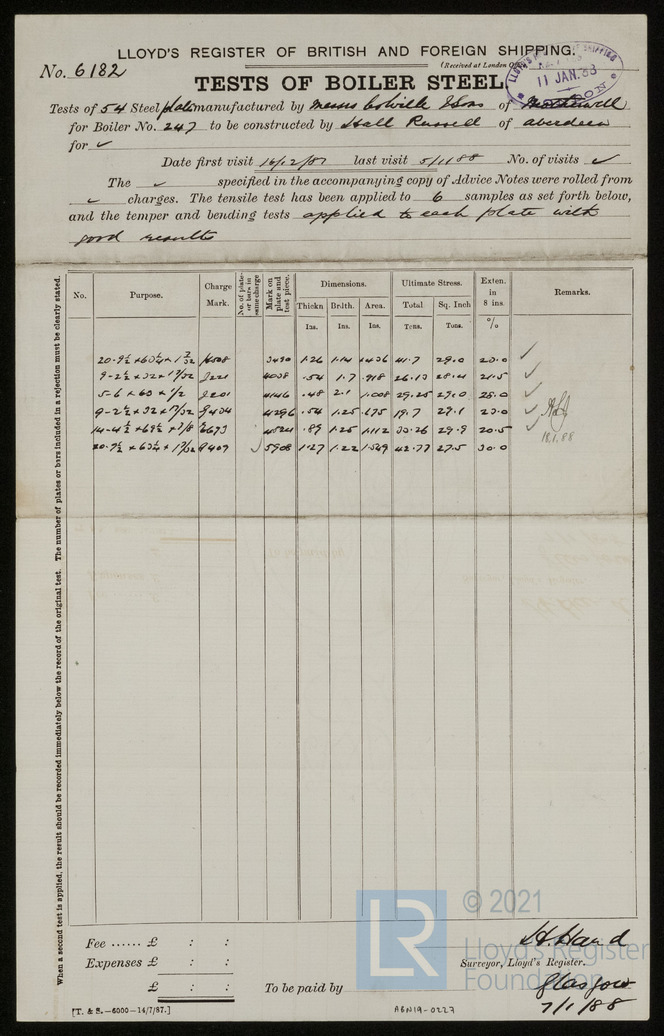 LLOYD'S REGISTER OF BRITISH AND FOREIGN SHIPPING.
No. 6182
(Received at London
LLOYD'S SHIPPING
11 JAN. 88
TESTS OF BOILER STEEL.
Tests of 54 Steel plates manufactured by Messrs Colville & Sons of Motherwell
for Boiler No. 247 to be constructed by Hall Russell of Aberdeen
for ✓
Date first visit 16/12/87 last visit 5/1/88 No. of visits ✓
The ✓ specified in the accompanying copy of Advice Notes were rolled from
✓ charges. The tensile test has been applied to 6 samples as set forth below,
and the temper and bending tests applied to each plate with
good results
No. Purpose. Charge Mark. No. of plates or bars in same charge Mark on plate and test piece. Dimensions. Ultimate Stress. Exten. in 8 ins. Remarks.
Thickn Br.lth. Area. Total Sq. Inch
Ins. Ins. Ins. Tons. Tons. %
3490 1.26 1.14 1.436 41.7 29.0 23.0 ✓
4038 .54 1.7 .918 26.13 28.4 21.5 ✓
5-6 × 60 × 1/2 4146 .48 2.1 1.008 29.25 29.0 25.0 ✓
4296 .54 1.25 .675 19.7 29.1 23.0 ✓
4524 .89 1.25 1.112 33.26 29.9 20.5 ✓
18.1.88
✓ 5908 1.27 1.22 1.549 42.77 27.5 30.0
When a second test is applied, the result should be recorded immediately below the record of the original test. The number of plates or bars included in a rejection must be clearly stated.
Fee ...... £ : :
Expenses £ : :
£ : :
To be paid by
H. Hand
Surveyor, Lloyd's Register.
Glasgow
7/1/88
[T. & S.—6000—14/7/87.]
ABN19-0227
LR
© 2021
Lloyd's Register
Foundation